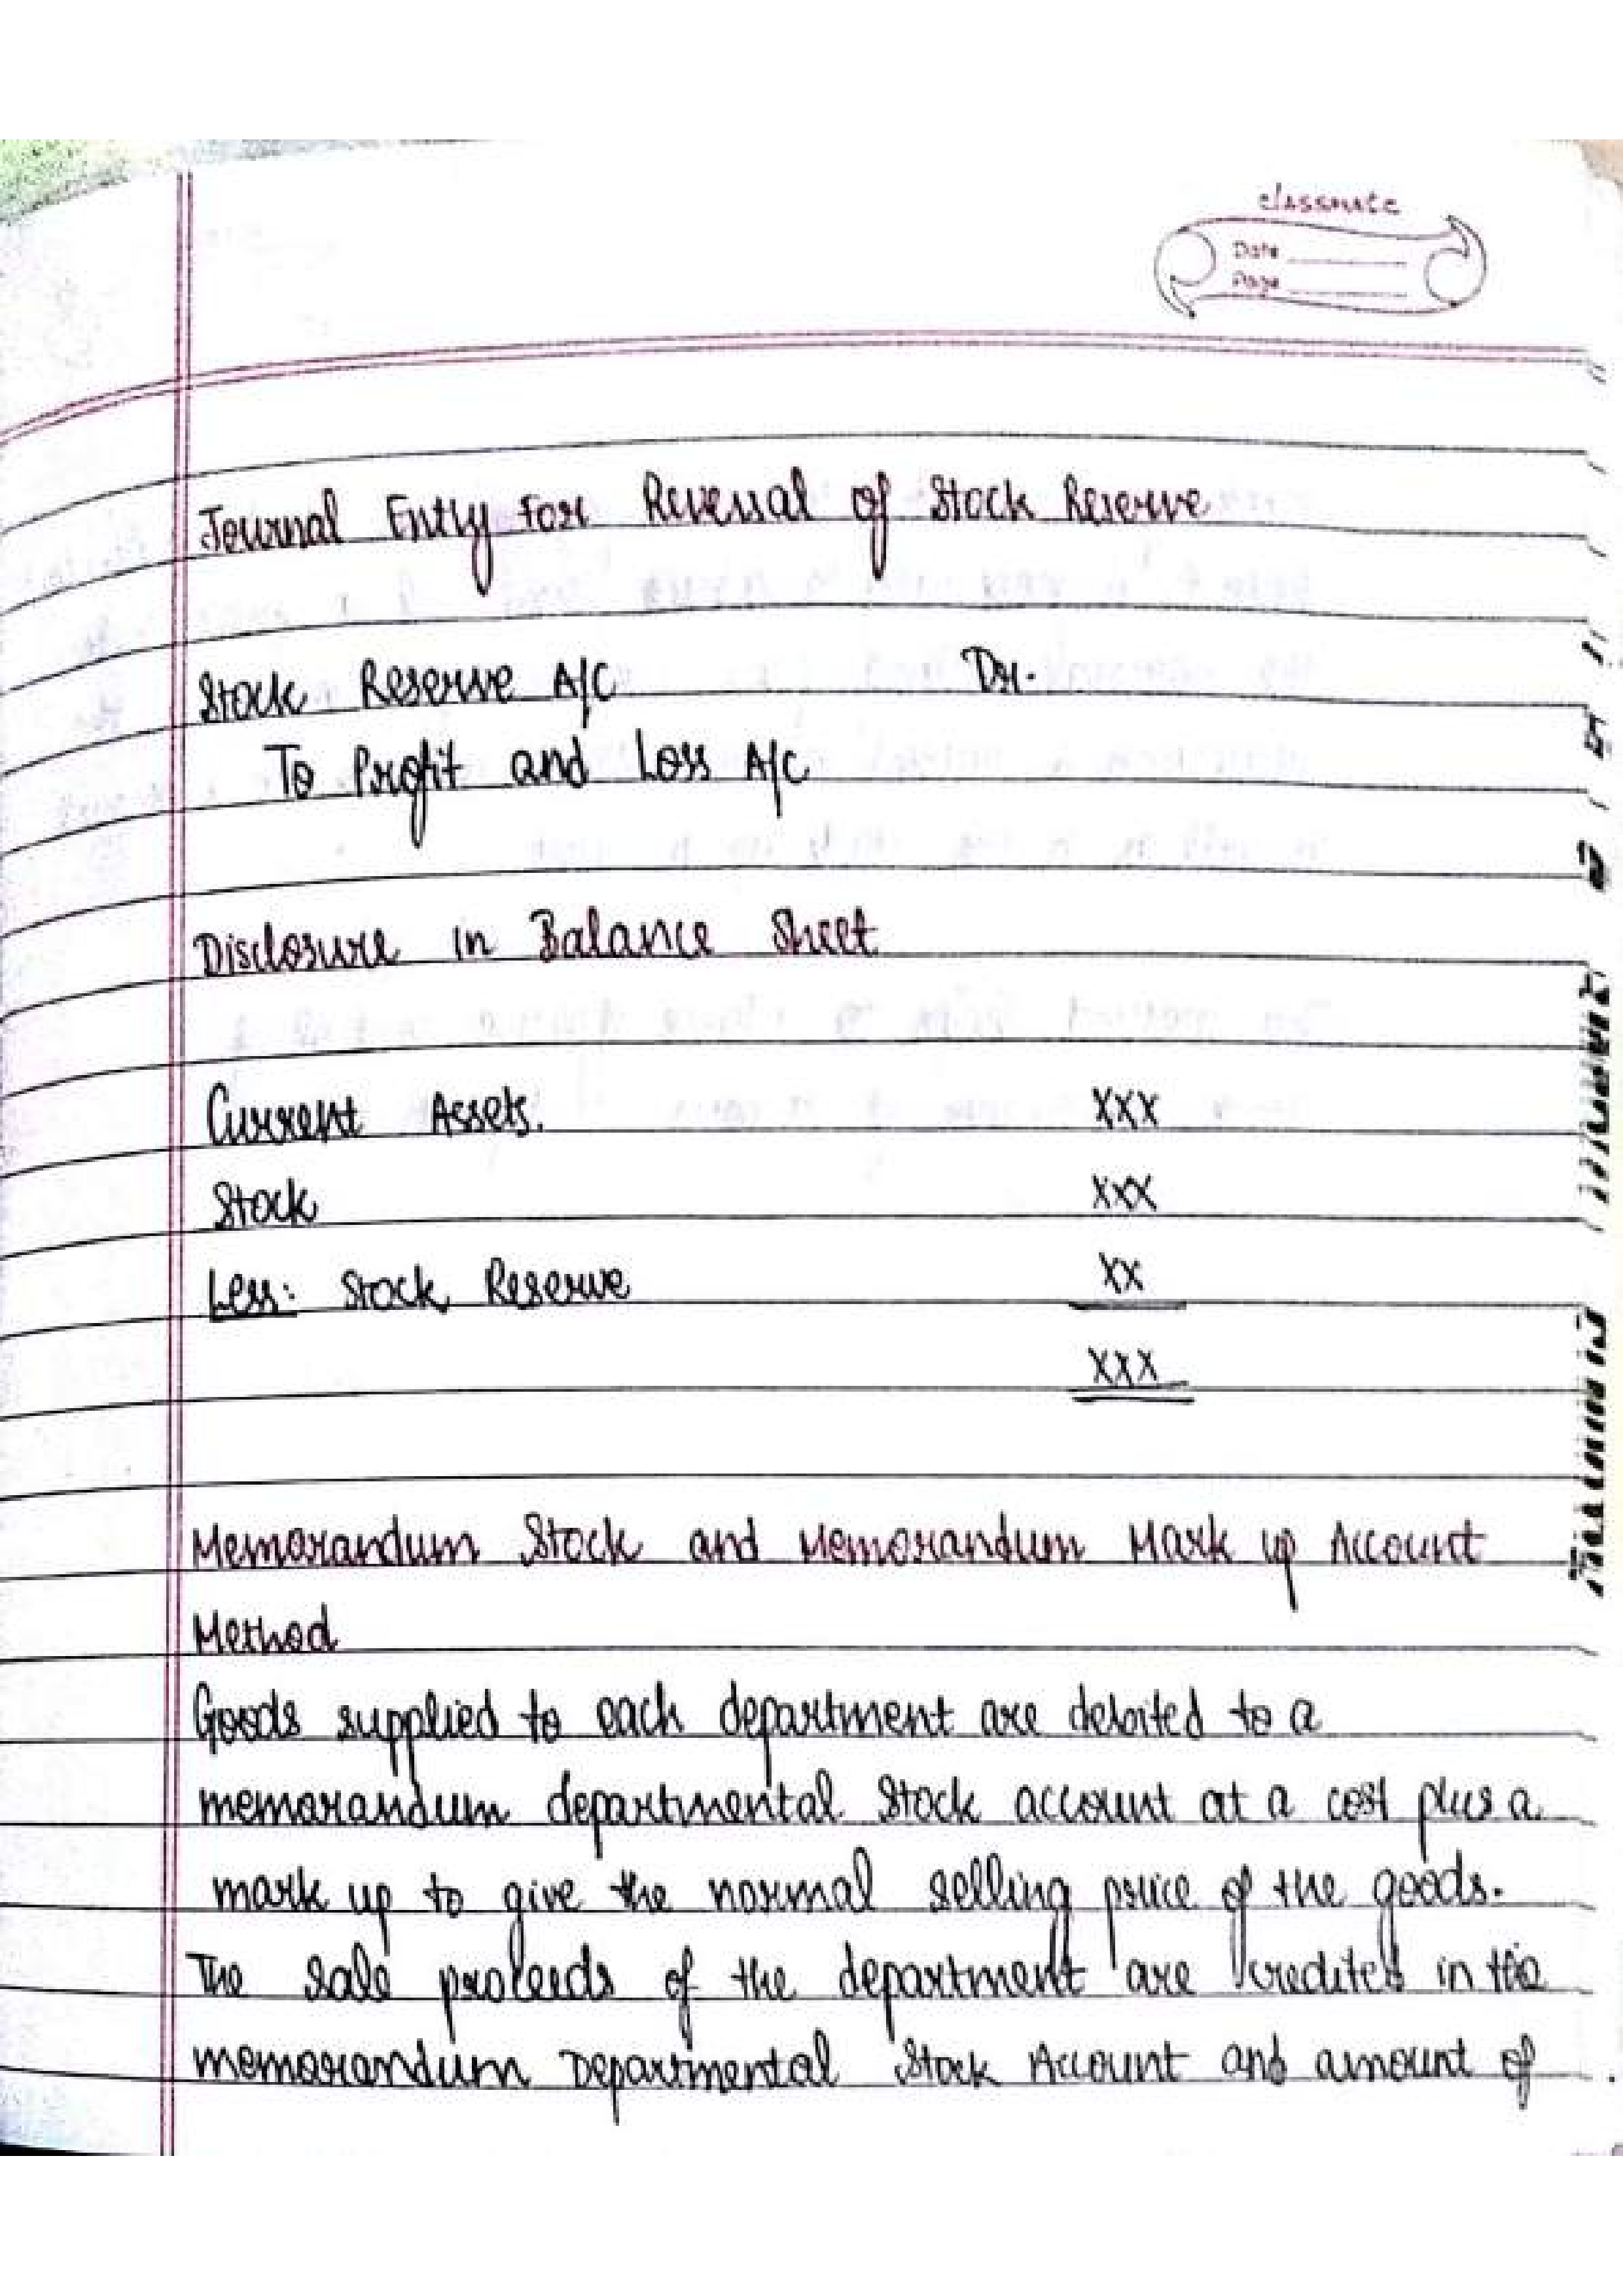 classmate
Date
Page
Journal Entry For Reversal of Stock Reserve
Stock Reserve A/C Dr.
To Profit and Loss A/c
Disclosure in Balance Sheet
Current Assets. XXX
Stock XXX
Less: Stock Reserve XX
XXX
Memorandum Stock and Memorandum Mark up Account
Method
Goods supplied to each department are debited to a
memorandum departmental Stock account at a cost plus a
mark up to give the normal selling price of the goods.
The sale proceeds of the department are credited in the
memorandum Departmental Stock Account and amount of